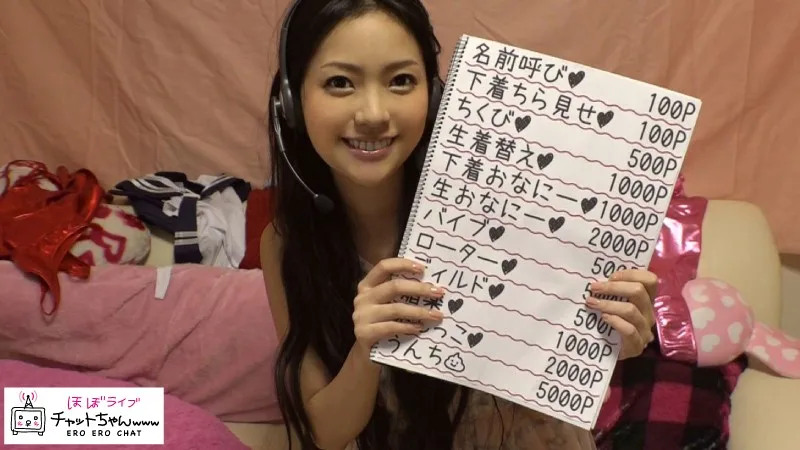 名前呼び♥ 100P
下着ちら見せ♥ 100P
ちくび♥ 500P
生着替え♥ 1000P
下着おなにー♥ 1000P
生おなにー♥ 2000P
バイブ♥
ローター♥
ディルド♥ 500P
1000P
2000P
うんち 5000P
ほぼライブ
チャットちゃんwww
ERO ERO CHAT